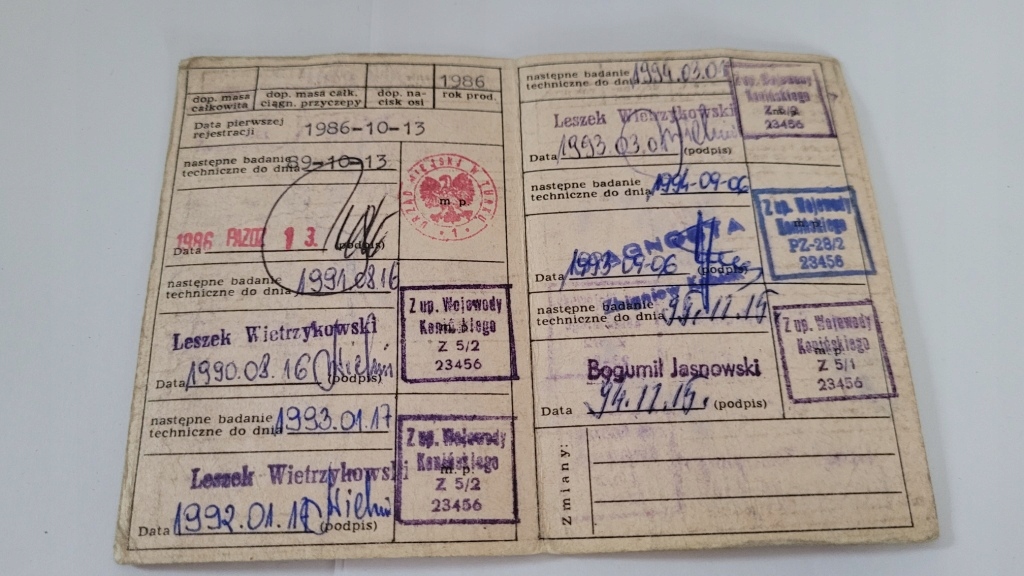 1986
dop. masa całkowita
dop. masa całk. ciągn. przyczepy
dop. nacisk osi
rok prod.
Data pierwszej rejestracji 1986-10-13
następne badanie techniczne do dnia 89-10-13
URZĄD MIEJSKI W TURKU
1
m. p.
1986 PAŹDZ 13.
Data (podpis)
następne badanie techniczne do dnia 1991.08.16
Leszek Wietrzykowski
Data 1990.08.16 (podpis)
Z up. Wojewody
Konińskiego
Z 5/2
23456
następne badanie techniczne do dnia 1993.01.17
Leszek Wietrzykowski
Data 1992.01.17 (podpis)
Z up. Wojewody
Konińskiego
m. p.
Z 5/2
23456
następne badanie techniczne do dnia 1994.03.01
Leszek Wietrzykowski
Data 1993.03.01 (podpis)
Z up. Wojewody
Konińskiego
23456
następne badanie techniczne do dnia 1994-09-06
DIAGNOSTA
Zbigniew
Data 1993-09-06 (podpis)
Z up. Wojewody
Konińskiego
PZ-28/2
23456
następne badanie techniczne do dnia 95.11.15
Bogumił Jasnowski
Data 94.11.15. (podpis)
Z up. Wojewody
Konińskiego
m. p.
Z 5/1
23456
Zmiany: